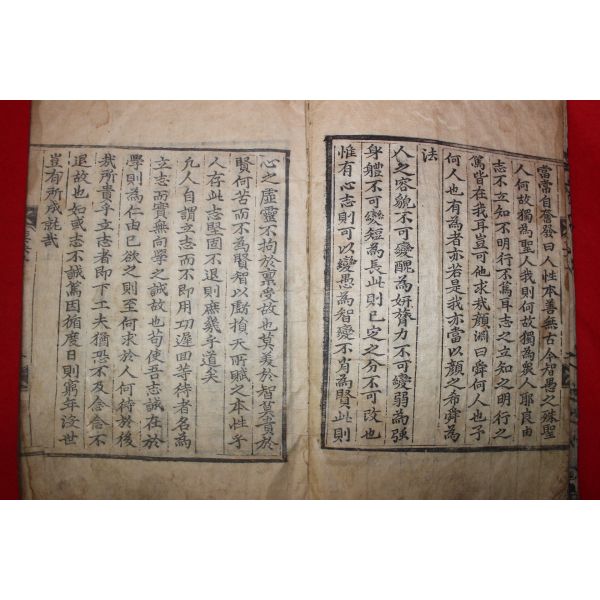 當常自奮發曰人性本善無古今智愚之殊聖
人何故獨為聖人我則何故獨為衆人耶良由
志不立知不明行不篤耳志之立知之明行之
篤皆在我耳豈可他求哉顔淵曰舜何人也予
何人也有為者亦若是我亦當以顔之希舜為
法
人之容貌不可變醜為姸膂力不可變弱為強
身體不可變短為長此則已定之分不可改也
惟有心志則可以變愚為智變不肖為賢此則
心之虛靈不拘於稟受故也莫美於智莫貴於
賢何苦而不為賢智以虧損天所賦之本性乎
人存此志堅固不退則庶幾乎道矣
凡人自謂立志而不即用功遲回等待者名為
立志而實無向學之誠故也苟使吾志誠在於
學則為仁由己欲之則至何求於人何待於後
哉所貴乎立志者即下工夫猶恐不及念念不
退故也如或志不誠篤因循度日則窮年沒世
豈有所成就哉